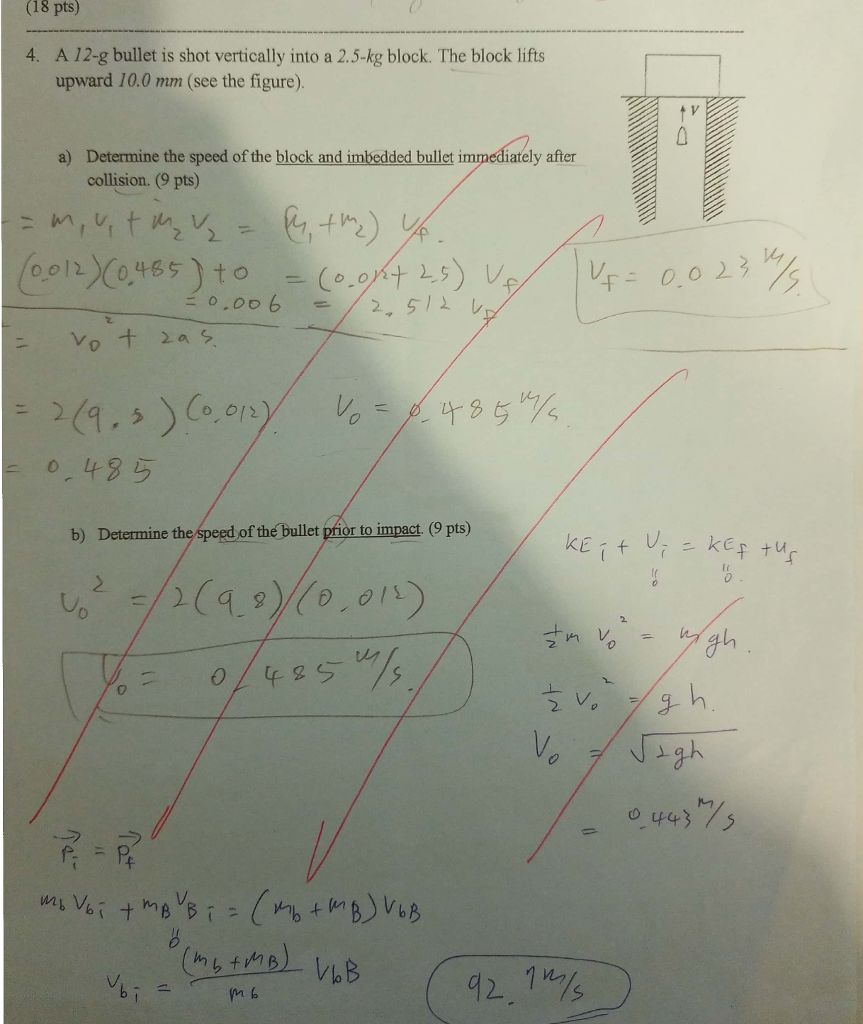 (18 pts)
4. A 12-g bullet is shot vertically into a 2.5-kg block. The block lifts
upward 10.0 mm (see the figure).
V
a) Determine the speed of the block and imbedded bullet immediately after
collision. (9 pts)
= m₁ v₁ + m₂ v₂ = (m₁ + m₂) vf.
(0.012)(0.485) + 0 = (0.012 + 2.5) Vf
Vf = 0.023 m/s.
= 0.006 = 2.512 Vf
= v₀² + 2as.
= 2(9.8)(0.012) V₀ = 0.485 m/s.
= 0.485
b) Determine the speed of the bullet prior to impact. (9 pts)
KEi + Ui = KEf + Uf
"0 "0.
v₀² = 2(9.8)(0.012)
½ m V₀² = mgh.
V₀ = 0.485 m/s.
½ V₀² = gh.
V₀ = √2gh
= 0.443 m/s
Pi = Pf
mb Vbi + mB VBi = (mb + mB) VbB
"0
Vbi = (mb + mB) / mb VbB
92.7 m/s